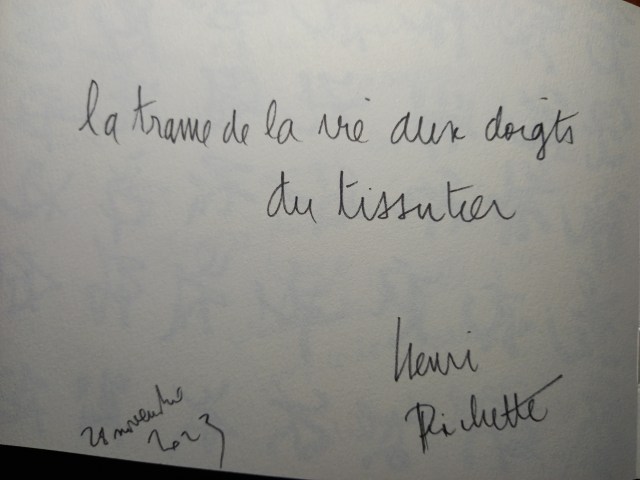 la trame de la vie aux doigts
du tissutier
Henri
Richette
novembre
2023